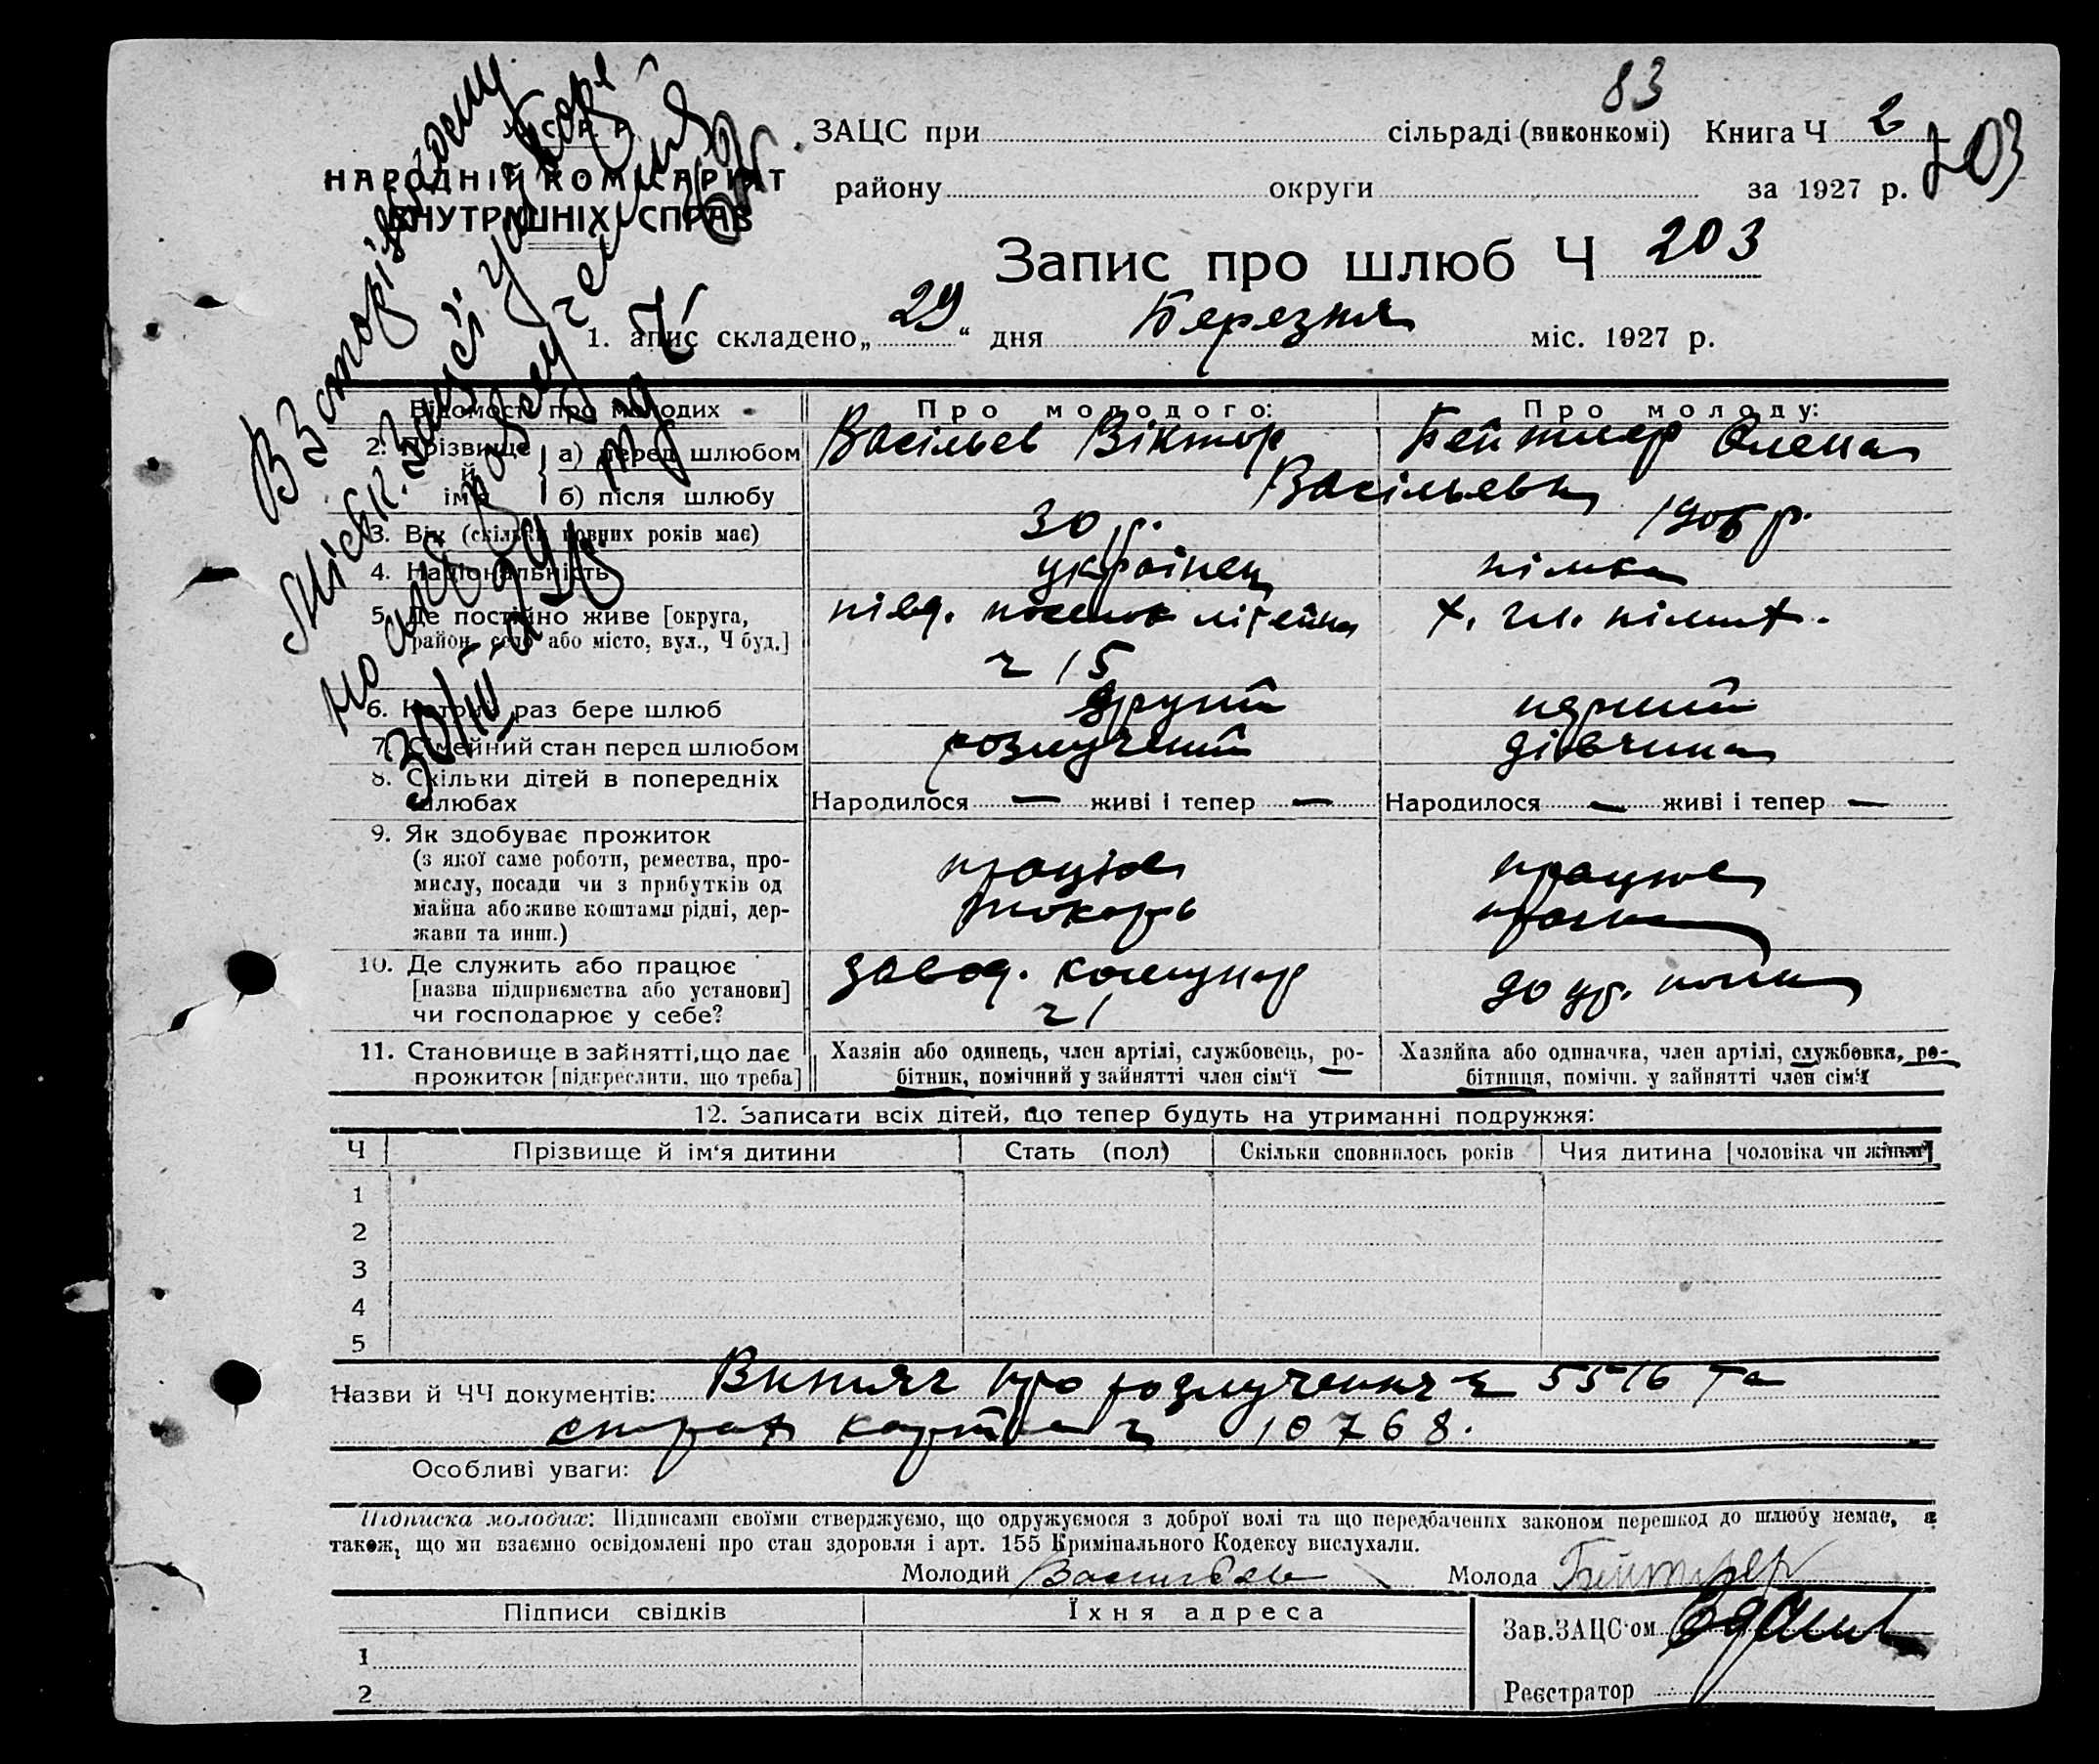 83
ЗАЦС при сільраді (виконкомі) Книга Ч 2
203
У. С. Р. Р.
НАРОДНІЙ КОМІСАРІЯТ
ВНУТРІШНІХ СПРАВ
району округи за 1927 р.
Запис про шлюб Ч 203
1. апис складено „29“ дня Березня міс. 1927 р.
Відомості про молодих Про молодого: Про молоду:
2. Прізвище й ім'я а) перед шлюбом Васільев Віктор Бейтнер Олена
б) після шлюбу Васільевы
3. Вік (скільки повних років має) 30 р. 1906 р.
4. Національність українець німка
5. Де постійно живе [округа, район, село або місто, вул., Ч буд.] півд. поселок
ч 15
6. Котрий раз бере шлюб другий перший
7. Сімейний стан перед шлюбом розлучений дівчина
8. Скільки дітей в попередніх шлюбах Народилося — живі і тепер — Народилося — живі і тепер —
9. Як здобуває прожиток
(з якої саме роботи, ремества, про-
мислу, посади чи з прибутків од
майна або живе коштами рідні, дер-
жави та инш.)
працює працює
токарь
10. Де служить або працює
[назва підприємства або установи]
чи господарює у себе?
завод. комунар
ч 1
11. Становище в зайнятті, що дає
прожиток [підкреслити, що треба]
Хазяін або одинець, член артілі, службовець, ро-
бітник, помічний у зайнятті член сім'ї
Хазяйка або одиначка, член артілі, службовка, ро-
бітниця, помічн. у зайнятті член сім'ї
12. Записати всіх дітей, що тепер будуть на утриманні подружжя:
Ч Прізвище й ім'я дитини Стать (пол) Скільки сповнилось років Чия дитина [чоловіка чи жінки]
1
2
3
4
5
Назви й ЧЧ документів: Витяг про розлучення ч 5516 та
страх картка ч 10768.
Особливі уваги:
Підписка молодих: Підписами своїми стверджуємо, що одружуємося з доброї волі та що передбачених законом перешкод до шлюбу немає, а
також, що ми взаємно освідомлені про стан здоровля і арт. 155 Кримінального Кодексу вислухали.
Молодий Васильев Молода Бейтнер
Підписи свідків Їхня адреса
Зав.ЗАЦС'ом
1
2
Реєстратор